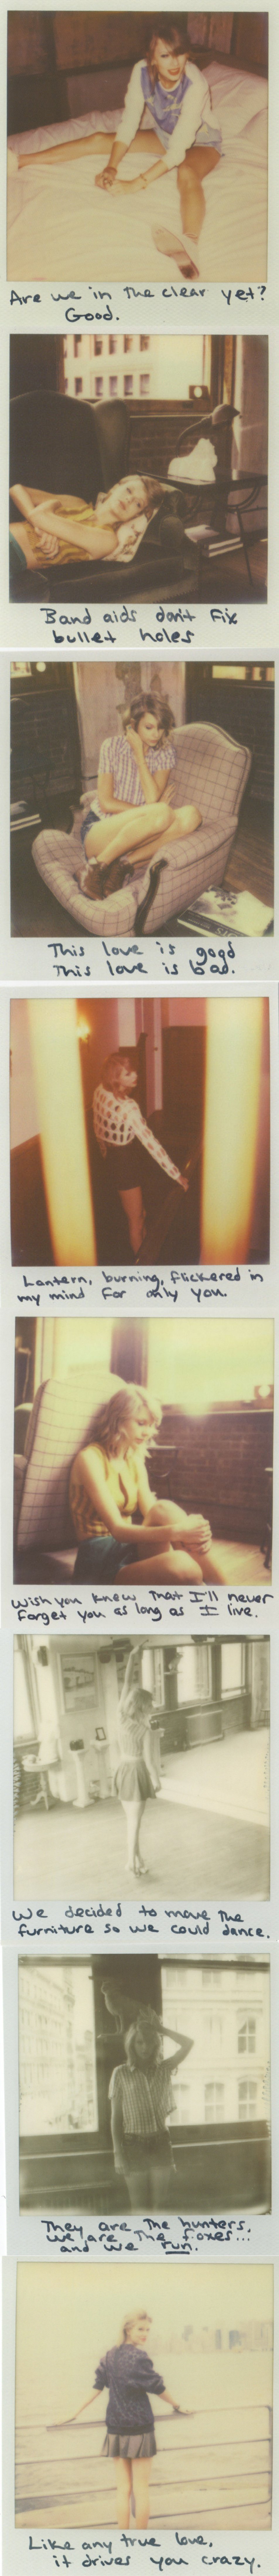 Are we in the clear yet?
Good.
Band aids don't fix
bullet holes
This love is good
This love is bad.
Lantern, burning, flickered in
my mind for only you.
Wish you knew that I'll never
forget you as long as I live.
We decided to move the
furniture so we could dance.
They are the hunters,
we are the foxes...
and we run.
Like any true love,
it drives you crazy.